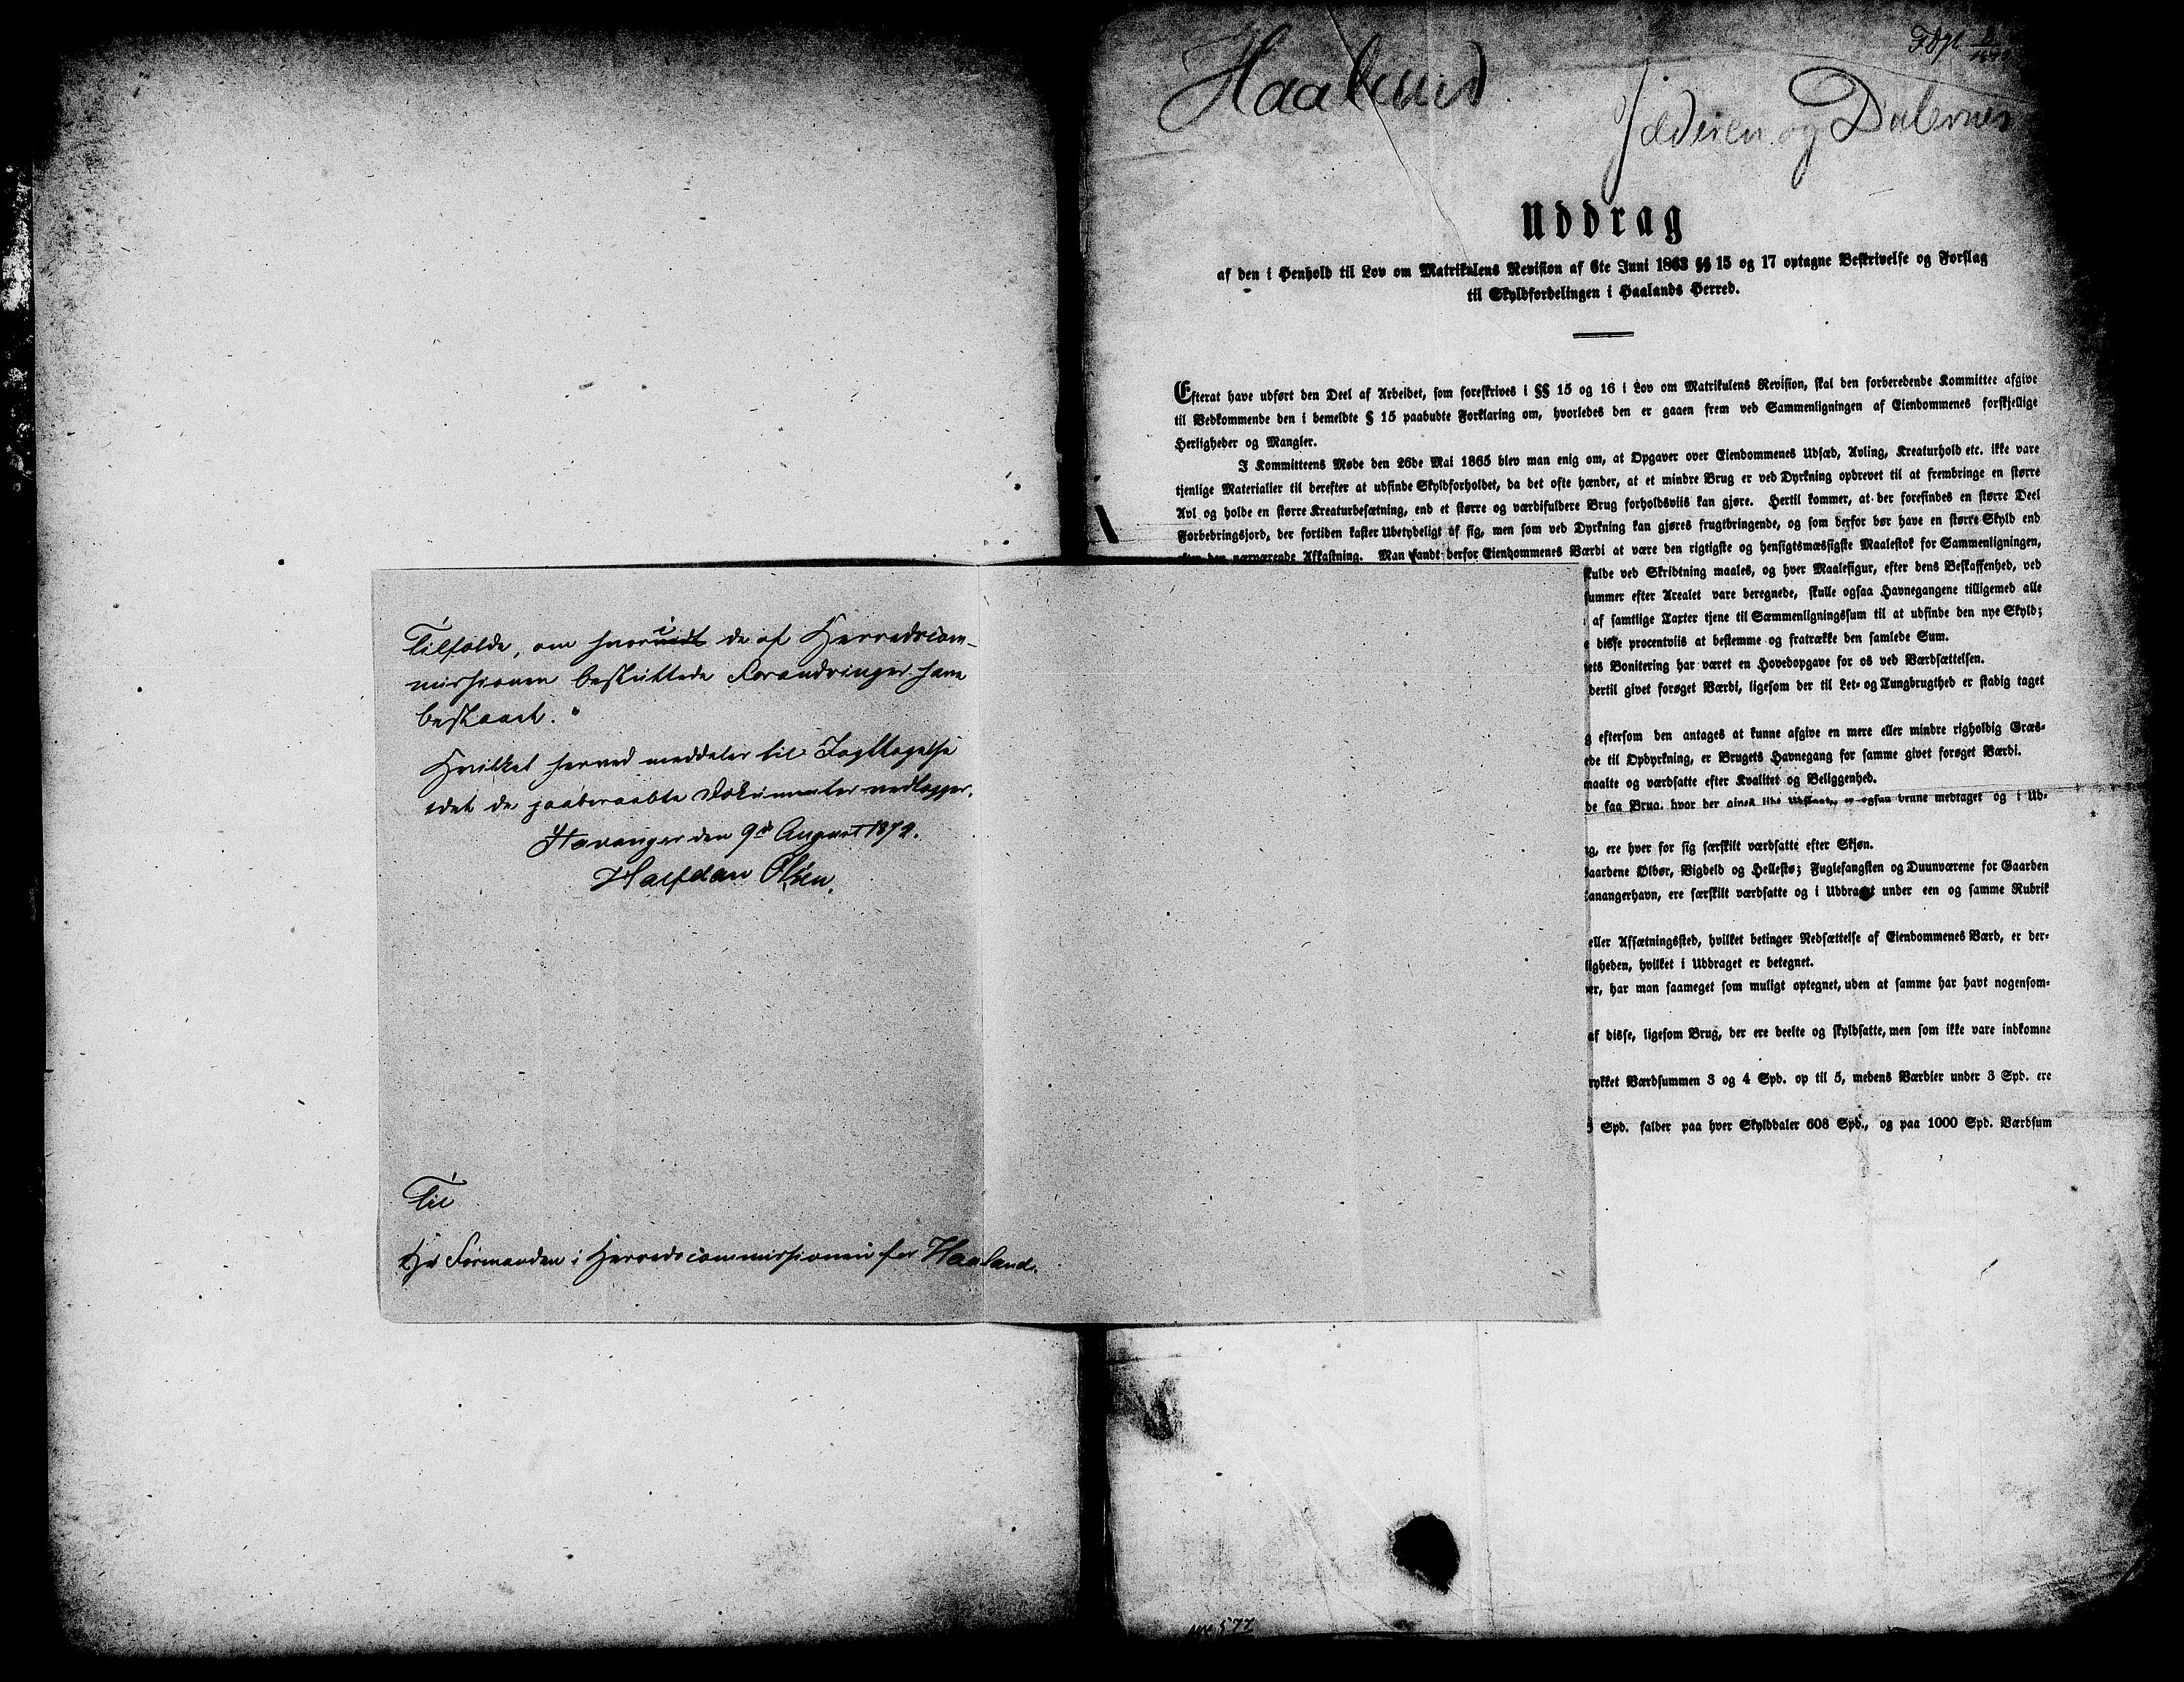 Tilfælde, om hvorvidt de af Herredscom-
missionen besluttede Forandringer have
bestaaet."
Hvilket herved meddeles til Iagttagelse
idet de paaberaabte Dokumenter vedlægges.
Stavanger den 9de August 1872.
Halfdan Olsen.
Til
Hr Formanden i Herredscommissionen for Haaland.
Haaland
Fdgt
Jæderen og Dalernes
Uddrag
af den i Henhold til Lov om Matrikulens Revision af 6te Juni 1863 §§ 15 og 17 optagne Beskrivelse og Forslag
til Skyldfordelingen i Haalands Herred.
Efterat have udført den Deel af Arbeidet, som foreskrives i §§ 15 og 16 i Lov om Matrikulens Revision, skal den forberedende Kommittee afgive
til Vedkommende den i bemeldte § 15 paabudte Forklaring om, hvorledes den er gaaen frem ved Sammenligningen af Eiendommenes forskjellige
Herligheder og Mangler.
I Kommitteens Møde den 26de Mai 1865 blev man enig om, at Opgaver over Eiendommenes Udsæd, Avling, Kreaturhold etc. ikke vare
tjenlige Materialier til derefter at udfinde Skyldforholdet, da det ofte hænder, at et mindre Brug er ved Dyrkning opdrevet til at frembringe en større
Avl og holde en større Kreaturbesætning, end et større og værdifuldere Brug forholdsviis kan gjøre. Hertil kommer, at der forefindes en større Deel
Forbedringsjord, der fortiden kaster Ubetydeligt af sig, men som ved Dyrkning kan gjøres frugtbringende, og som derfor bør have en større Skyld end
efter den nærværende Afkastning. Man fandt derfor Eiendommenes Værdi at være den rigtigste og hensigtsmæssigste Maalestok for Sammenligningen,
skulde ved Skridtning maales, og hver Maalefigur, efter dens Beskaffenhed, ved
summer efter Arealet vare beregnede, skulle ogsaa Havnegangene tilligemed alle
af samtlige Taxter tjene til Sammenligningssum til at udfinde den nye Skyld;
disse procentviis at bestemme og fratrække den samlede Sum.
ets Bonitering har været en Hovedopgave for os ved Værdsættelsen.
dertil givet forøget Værdi, ligesom der til Let- og Tungbrugthed er stadig taget
g eftersom den antages at kunne afgive en mere eller mindre righoldig Græs-
ede til Opdyrkning, er Brugets Havnegang for samme givet forøget Værdi.
maalte og værdsatte efter Kvalitet og Beliggenhed.
de faa Brug, hvor der er ogsaa denne medtaget og i Ud-
ng, ere hver for sig særskilt værdsatte efter Skjøn.
Gaardene Ølbør, Vigdeld og Hellestø; Fuglefangsten og Duunværene for Gaarden
Tanangerhavn, ere særskilt værdsatte og i Uddraget under een og samme Rubrik
eller Afsætningssted, hvilket betinger Nedsættelse af Eiendommenes Værd, er der-
ligheden, hvilket i Uddraget er betegnet.
er, har man saameget som muligt optegnet, uden at samme har havt nogensom-
af disse, ligesom Brug, der ere deelte og skyldsatte, men som ikke vare indkomne
rykket Værdsummen 3 og 4 Spd. op til 5, medens Værdier under 3 Spd. ere
Spd. falder paa hver Skylddaler 608 Spd., og paa 1000 Spd. Værdsum
577